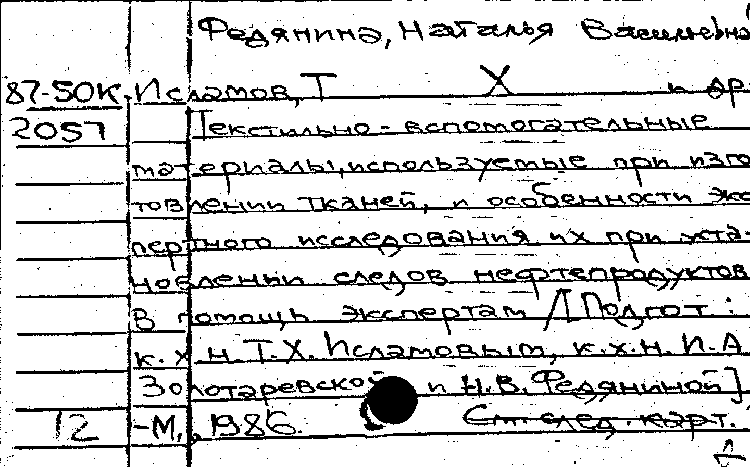 Федянина, Наталья Васильевна
87-50К. Исламов, Т Х и др
2057 Текстильно-вспомогательные
материалы, используемые при изго
товлении тканей, и особенности экс
пертного исследования их при уста-
новлении следов нефтепродуктов
В помощь экспертам / [Подгот.:
к.х.н. Т.Х. Исламовым, к.х.н. И.А
Золотаревской и Н.В. Федяниной]
12 -М., 1986. См. след. карт.